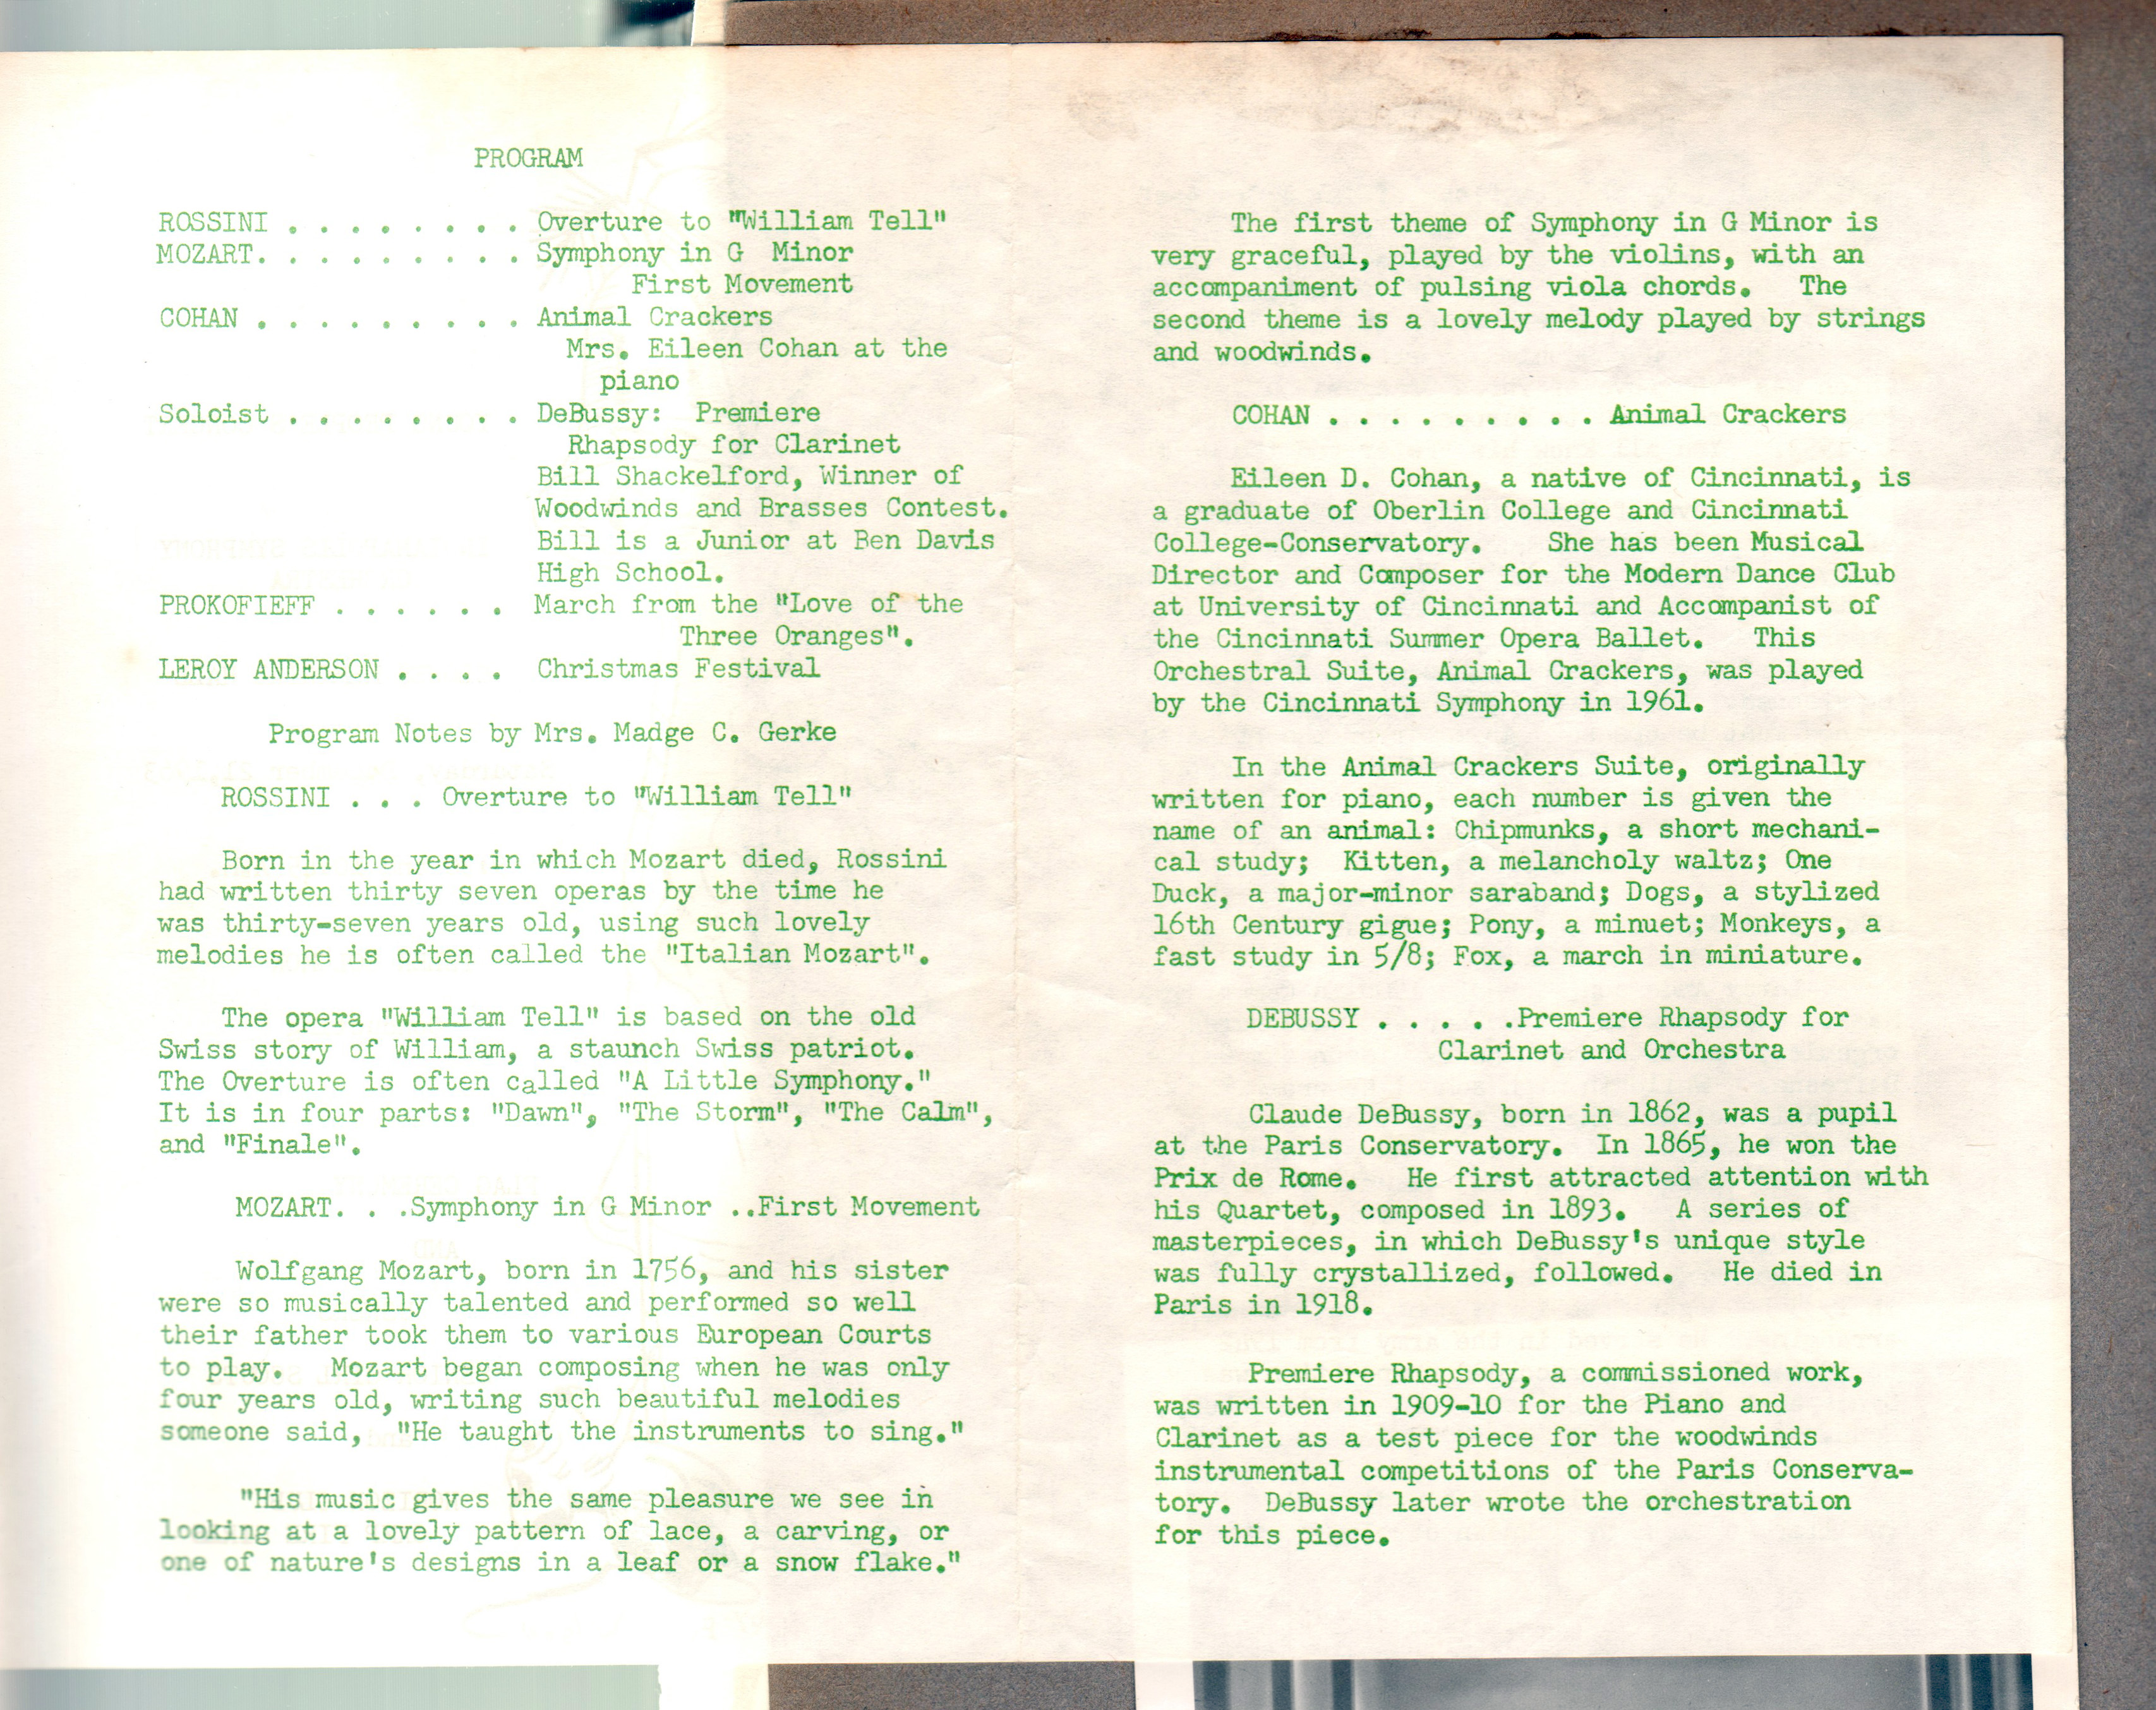 PROGRAM
ROSSINI . . . . . . . . Overture to "William Tell"
MOZART. . . . . . . . . Symphony in G  Minor
First Movement
COHAN . . . . . . . . . Animal Crackers
Mrs. Eileen Cohan at the
piano
Soloist . . . . . . . . DeBussy:  Premiere
Rhapsody for Clarinet
Bill Shackelford, Winner of
Woodwinds and Brasses Contest.
Bill is a Junior at Ben Davis
High School.
PROKOFIEFF . . . . . .  March from the "Love of the
Three Oranges".
LEROY ANDERSON . . . .  Christmas Festival
Program Notes by Mrs. Madge C. Gerke
ROSSINI . . . Overture to "William Tell"
Born in the year in which Mozart died, Rossini
had written thirty seven operas by the time he
was thirty-seven years old, using such lovely
melodies he is often called the "Italian Mozart".
The opera "William Tell" is based on the old
Swiss story of William, a staunch Swiss patriot.
The Overture is often called "A Little Symphony."
It is in four parts: "Dawn", "The Storm", "The Calm",
and "Finale".
MOZART. . .Symphony in G Minor ..First Movement
Wolfgang Mozart, born in 1756, and his sister
were so musically talented and performed so well
their father took them to various European Courts
to play.   Mozart began composing when he was only
four years old, writing such beautiful melodies
someone said,  "He taught the instruments to sing."
"His music gives the same pleasure we see in
looking at a lovely pattern of lace, a carving, or
one of nature's designs in a leaf or a snow flake."
The first theme of Symphony in G Minor is
very graceful, played by the violins, with an
accompaniment of pulsing viola chords.   The
second theme is a lovely melody played by strings
and woodwinds.
COHAN . . . . . . . . . . Animal Crackers
Eileen D. Cohan, a native of Cincinnati, is
a graduate of Oberlin College and Cincinnati
College-Conservatory.    She has been Musical
Director and Composer for the Modern Dance Club
at University of Cincinnati and Accompanist of
the Cincinnati Summer Opera Ballet.   This
Orchestral Suite, Animal Crackers, was played
by the Cincinnati Symphony in 1961.
In the Animal Crackers Suite, originally
written for piano, each number is given the
name of an animal: Chipmunks, a short mechani-
cal study;  Kitten, a melancholy waltz; One
Duck, a major-minor saraband; Dogs, a stylized
16th Century gigue; Pony, a minuet; Monkeys, a
fast study in 5/8; Fox, a march in miniature.
DEBUSSY . . . . .Premiere Rhapsody for
Clarinet and Orchestra
Claude DeBussy, born in 1862, was a pupil
at the Paris Conservatory.  In 1865, he won the
Prix de Rome.   He first attracted attention with
his Quartet, composed in 1893.   A series of
masterpieces, in which DeBussy's unique style
was fully crystallized, followed.   He died in
Paris in 1918.
Premiere Rhapsody, a commissioned work,
was written in 1909-10 for the Piano and
Clarinet as a test piece for the woodwinds
instrumental competitions of the Paris Conserva-
tory.  DeBussy later wrote the orchestration
for this piece.